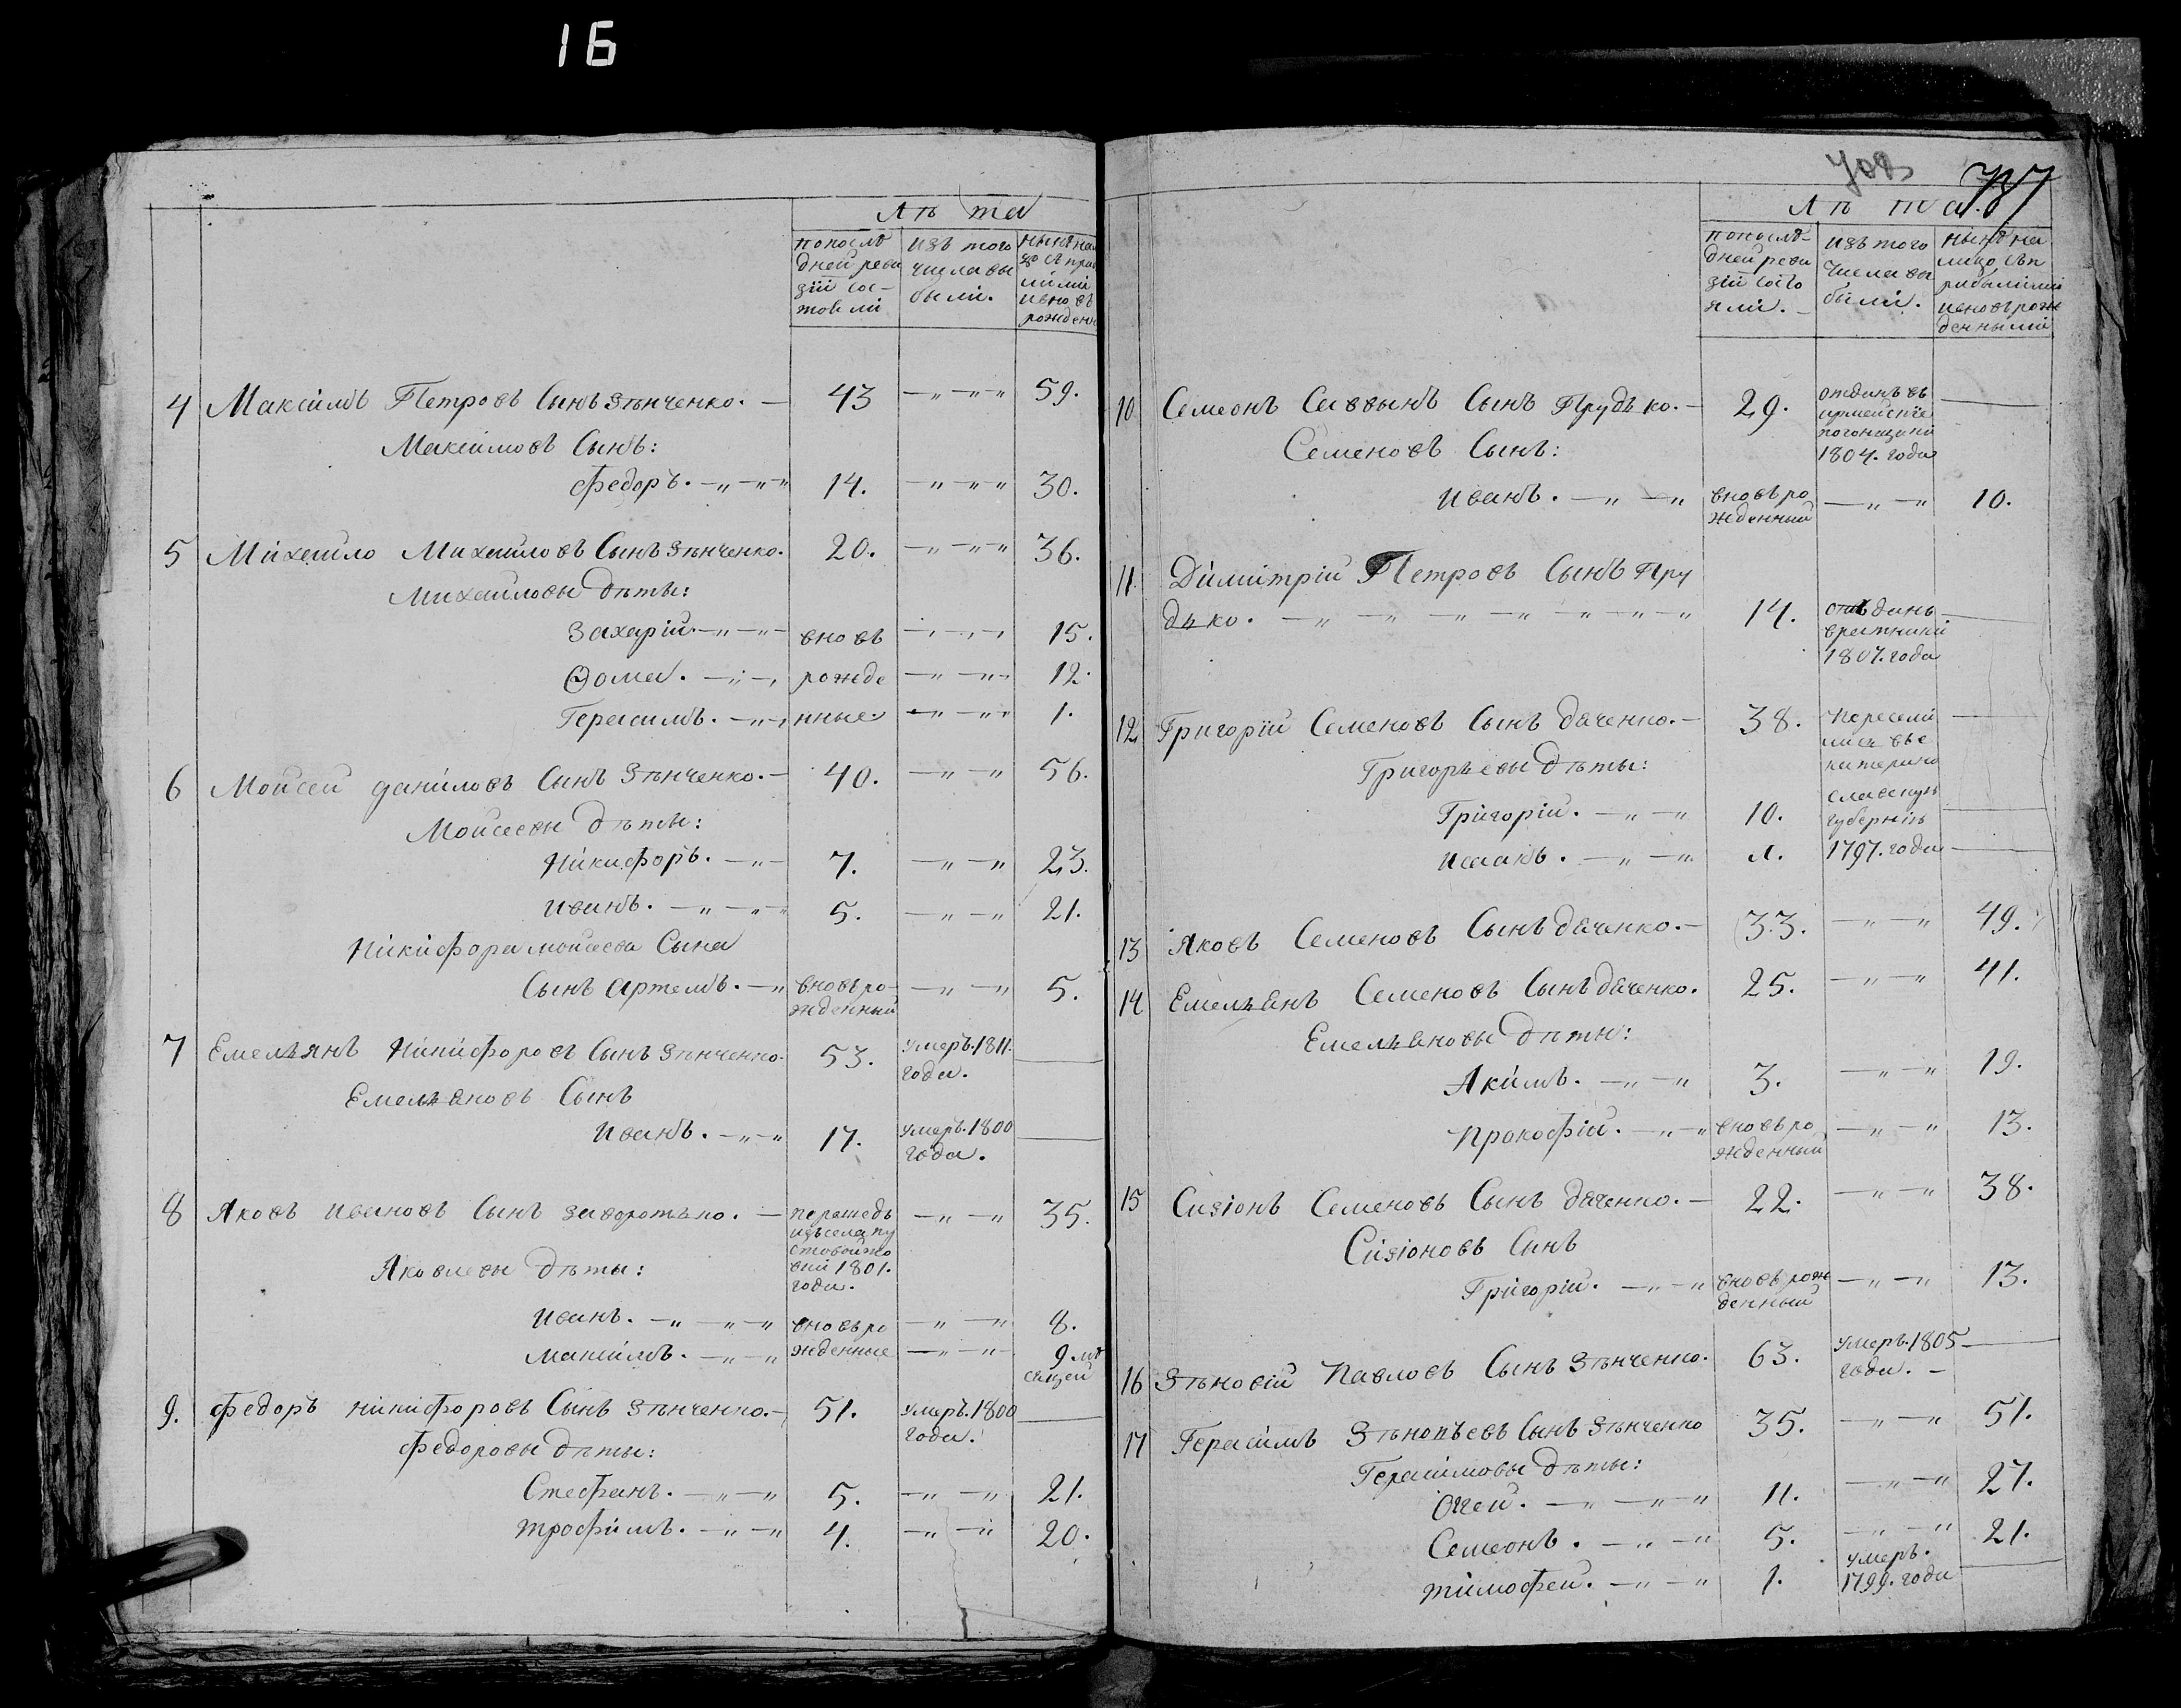 16
Лѣта
попослѣ
дней реви
зіи сос-
тояли
изъ того
числа вы
были.
нынѣ на
прибы
рожден
4 Максимъ Петровъ Сынъ Зѣнченко. — 43 —„—„—„ 59.
Максимовъ Сынъ:
Федоръ. —„—„—„ 14. —„—„—„ 30.
5 Михайло Михайловъ Сынъ Зѣнченко. 20. —„—„—„ 36.
Михайловы Дѣти:
Захарій —„—„— вновь —„—„— 15.
Ѳома. —„—„ рожде —„—„— 12.
Герасимъ. —„—„ нные —„—„— 1.
6 Мойсей Даниловъ Сынъ Зѣнченко. — 40. —„—„ 56.
Мойсеевы Дѣти:
Никифоръ. —„— 7. —„—„ 23.
Иванъ. —„—„—„ 5. —„—„ 21.
Никифора мойсеева Сына
Сынъ Артемъ. —„ вновь ро- —„—„ 5.
жденный
7 Емельянъ Никифоровъ Сынъ Зѣнченко. 53. умеръ. 1811. —
года.
Емельяновъ Сынъ
Иванъ. —„—„ 17. умеръ. 1800 —
года.
8 Яковъ Ивановъ Сынъ Заворотько. — перешедъ —„—„ 35.
изъ села пу
стовойто
вки 1801.
года.
Яковлевы Дѣти:
Иванъ. —„—„—„ вновь ро —„—„ 8.
Максимъ. —„—„ жденные —„—„ 9 мѣ
сяцей
9. Федоръ Никифоровъ Сынъ Зѣнченко. — 51. умеръ. 1800 —
года.
Федоровы Дѣти:
Стефанъ. —„—„ 5. —„—„ 21.
Трофимъ. —„—„ 4. —„—„ 20.
Лѣта
попослѣ-
дней реви
зіи состо
яли. —
изъ того
числа вы
были.
нынѣ на
лицо съ п
рибылыми
и вновь рож
денными
10 Семеонъ Саввынъ Сынъ Прудько. — 29. отданъ въ —
армейскіе
погонщики
1804. года
Семеновъ Сынъ:
Иванъ. —„—„ вновь ро —„—„ 10.
жденный
11 Димитрій Петровъ Сынъ Пру
дько. —„—„—„—„—„—„—„ 14. отъданъ —
вратники
1807. года
12 Григорій Семеновъ Сынъ Даченко. — 38. Пересели —
лися въ е
катерино
славскую
губернію
1797. года
Григорьевы Дѣти:
Григорій. —„—„ 10. —
Исаакъ. —„—„ —
13 Яковъ Семеновъ Сынъ Даченко. — 33. —„—„ 49.
14 Емельянъ Семеновъ Сынъ Даченко. 25. —„—„ 41.
Емельяновы Дѣти:
Якимъ. —„—„ 3. —„—„ 19.
Прокофій. —„—„ вновь ро —„—„ 13.
жденный
15 Сизіонъ Семеновъ Сынъ Даченко. — 22. —„—„ 38.
Сизіоновъ Сынъ
Григорій. —„—„ вновь рож —„—„ 13.
денный
16 Зѣновій Павловъ Сынъ Зѣнченко. 63. умеръ. 1805 —
года. —
17 Герасимъ Зѣновьевъ Сынъ Зѣнченко 35. —„—„ 51.
Герасимовы Дѣти:
—„—„—„ 11. —„—„ 27.
Семеонъ. —„—„ 5. —„—„ 21.
Тимофей. —„—„ 1. умеръ. —
1799. года